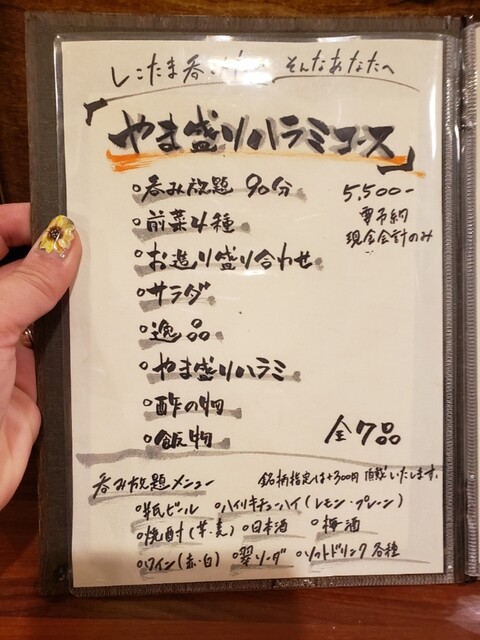 しこたま呑 そんなあなたへ
「やま盛りハラミコース」
○呑み放題 90分
5,500-
要予約
現金会計のみ
○前菜4種
○お造り盛り合わせ
○サラダ
○逸品
○やま盛りハラミ
○酢の物
○飯物
全7品
呑み放題メニュー
銘柄指定は+300円頂戴いたします。
○瓶ビール ○ハイリキチューハイ(レモン・プレーン)
○焼酎(芋・麦) ○日本酒 ○梅酒
○ワイン(赤・白) ○翠ソーダ ○ソフトドリンク各種